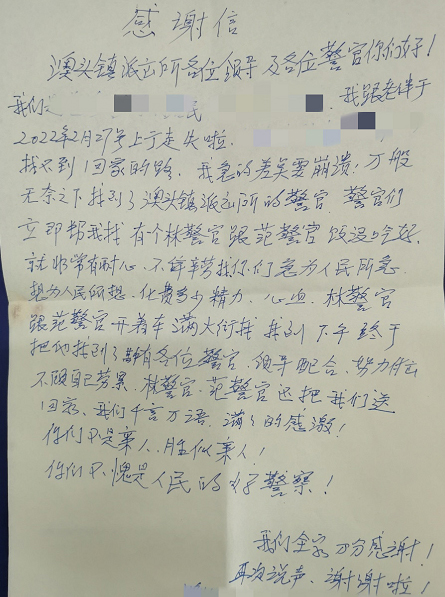 感谢信
澳头镇派出所各位领导及各位警官你们好！
我们是 民 我跟老伴于
2022年2月27号上午走失啦.
找不到回家的路. 我急的差矣要崩溃! 万般
无奈之下找到了澳头镇派出所的警官. 警官们
立即帮我找有个林警官跟范警官饭没吃好.
就非常有耐心. 不辞辛劳找你们急为人民所急.
想为人民所想. 化费多少精力. 心血. 林警官
跟范警官开着车满大街找 找到下午终于
把他找到了 各位警官. 领导配合. 努力付出
不顾自己劳累. 林警官. 范警官还把我们送
回家. 我们千言万语. 满满的感激!
你们不是亲人. 胜似亲人!
你们不愧是人民的好警察!
我们全家万分感谢!
再次说声. 谢谢啦!